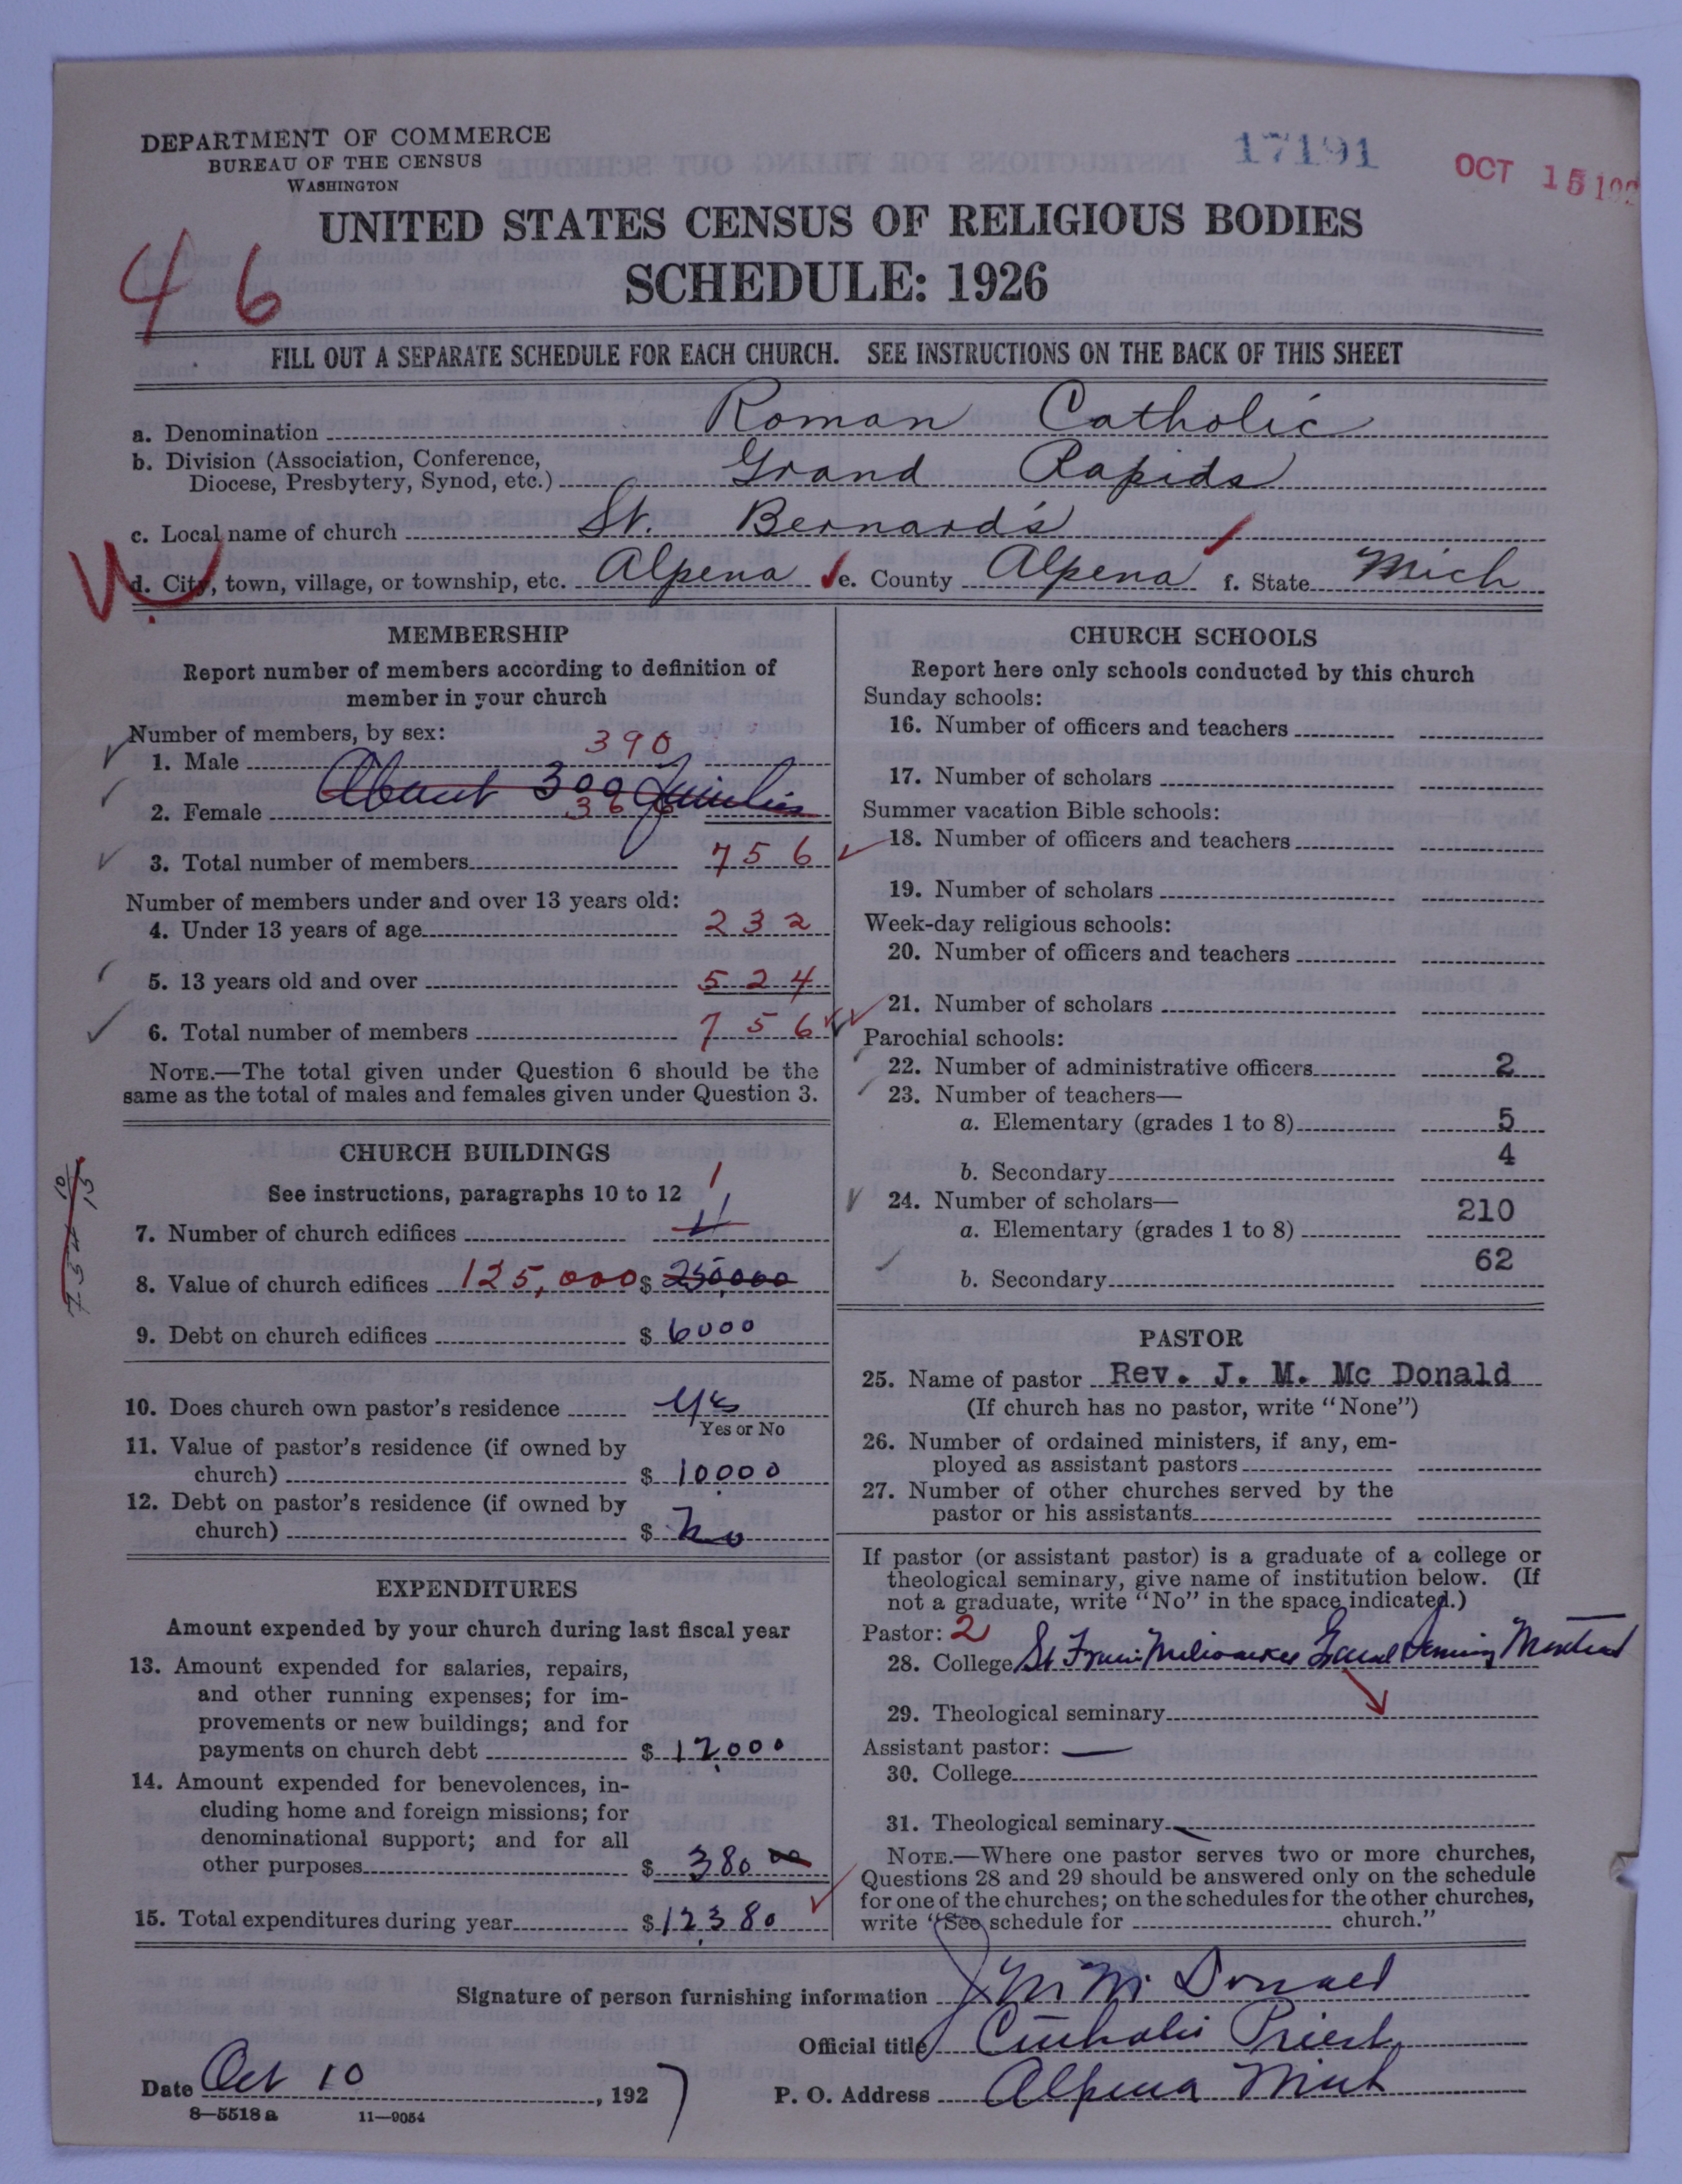 DEPARTMENT OF COMMERCE
BUREAU OF THE CENSUS
WASHINGTON
17191
OCT 15 192
UNITED STATES CENSUS OF RELIGIOUS BODIES
SCHEDULE: 1926
46
FILL OUT A SEPARATE SCHEDULE FOR EACH CHURCH. SEE INSTRUCTIONS ON THE BACK OF THIS SHEET
a. Denomination Roman Catholic
b. Division (Association, Conference, Diocese, Presbytery, Synod, etc.) Grand Rapids
c. Local name of church St. Bernard's
d. City, town, village, or township, etc. Alpena e. County Alpena f. State Mich
MEMBERSHIP
Report number of members according to definition of
member in your church
Number of members, by sex:
1. Male 390
About 300 families
2. Female 366
3. Total number of members 756
Number of members under and over 13 years old:
4. Under 13 years of age 232
5. 13 years old and over 524
6. Total number of members 756
NOTE.—The total given under Question 6 should be the
same as the total of males and females given under Question 3.
CHURCH BUILDINGS
See instructions, paragraphs 10 to 12
7. Number of church edifices 1
8. Value of church edifices 125,000 $ 250,000
9. Debt on church edifices $ 6000
10. Does church own pastor's residence Yes
Yes or No
11. Value of pastor's residence (if owned by
church) $ 10000
12. Debt on pastor's residence (if owned by
church) $ No
EXPENDITURES
Amount expended by your church during last fiscal year
13. Amount expended for salaries, repairs,
and other running expenses; for im-
provements or new buildings; and for
payments on church debt $ 12,000
14. Amount expended for benevolences, in-
cluding home and foreign missions; for
denominational support; and for all
other purposes $ 380 00
15. Total expenditures during year $ 12,380
CHURCH SCHOOLS
Report here only schools conducted by this church
Sunday schools:
16. Number of officers and teachers
17. Number of scholars
Summer vacation Bible schools:
18. Number of officers and teachers
19. Number of scholars
Week-day religious schools:
20. Number of officers and teachers
21. Number of scholars
Parochial schools:
22. Number of administrative officers 2
23. Number of teachers—
a. Elementary (grades 1 to 8) 5
b. Secondary 4
24. Number of scholars—
a. Elementary (grades 1 to 8) 210
b. Secondary 62
PASTOR
25. Name of pastor Rev. J. M. Mc Donald
(If church has no pastor, write "None")
26. Number of ordained ministers, if any, em-
ployed as assistant pastors
27. Number of other churches served by the
pastor or his assistants
If pastor (or assistant pastor) is a graduate of a college or
theological seminary, give name of institution below. (If
not a graduate, write "No" in the space indicated.)
Pastor: 2
28. College St Francis Milwaukee Grand Seminary Montreal
29. Theological seminary
Assistant pastor:
30. College
31. Theological seminary
NOTE.—Where one pastor serves two or more churches,
Questions 28 and 29 should be answered only on the schedule
for one of the churches; on the schedules for the other churches,
write "See schedule for church."
Signature of person furnishing information J M McDonald
Official title Catholic Priest
Date Oct 10, 1927 P. O. Address Alpena Mich
8—5518 a 11—9054